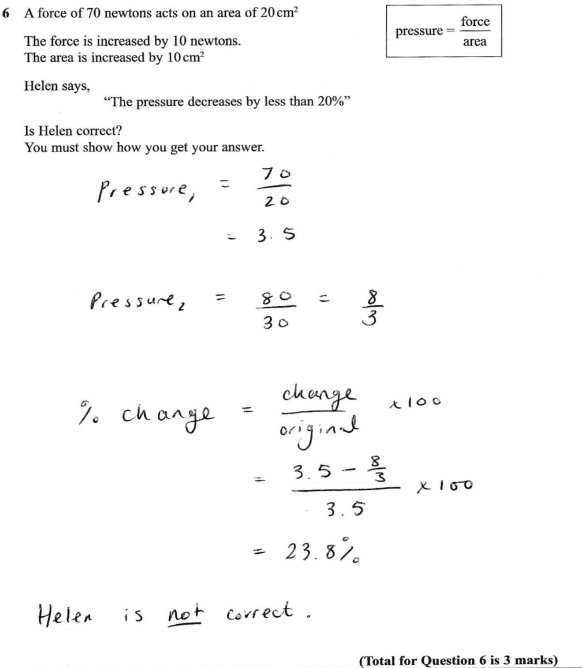 6 A force of 70 newtons acts on an area of 20 cm²
pressure = force / area
The force is increased by 10 newtons.
The area is increased by 10 cm²
Helen says,
“The pressure decreases by less than 20%”
Is Helen correct?
You must show how you get your answer.
Pressure₁ = 70 / 20
= 3.5
Pressure₂ = 80 / 30 = 8 / 3
% change = change / original × 100
= 3.5 − 8/3 / 3.5 × 100
= 23.8%
Helen is not correct.
(Total for Question 6 is 3 marks)